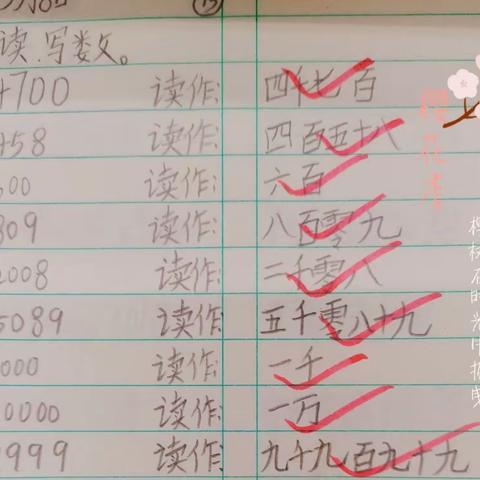 读、写数。
4700 读作: 四千七百
458 读作: 四百五十八
600 读作: 六百
809 读作: 八百零九
2008 读作: 二千零八
5089 读作: 五千零八十九
000 读作: 一千
0000 读作: 一万
999 读作: 九千九百九十九
樱花季